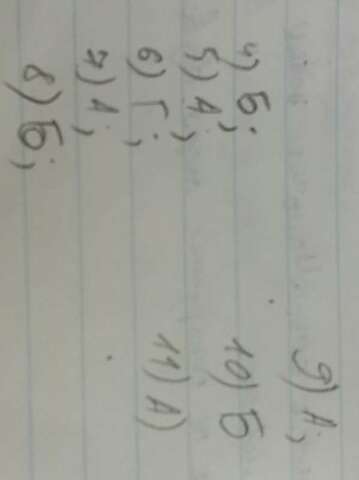 4) Б;
5) А;
6) Г;
7) А;
8) Б;
9) А;
10) Б
11) А)